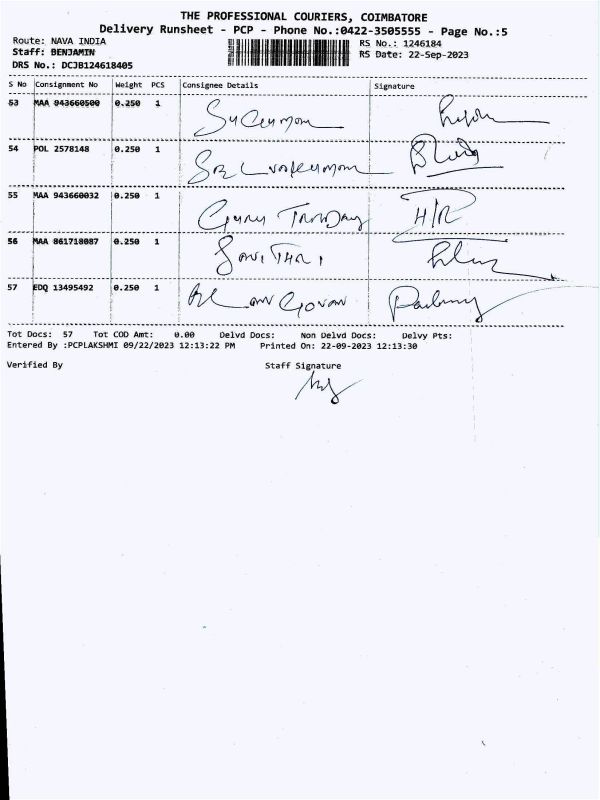 THE PROFESSIONAL COURIERS, COIMBATORE
Delivery Runsheet - PCP - Phone No.:0422-3505555 - Page No.:5
Route: NAVA INDIA
RS No.: 1246184
Staff: BENJAMIN
RS Date: 22-Sep-2023
DRS No.: DCJB124618405
S No Consignment No Weight PCS Consignee Details Signature
53 MAA 943660500 0.250 1
54 POL 2578148 0.250 1
55 MAA 943660032 0.250 1 Guru H/R
56 MAA 861718087 0.250 1 SAVITHRI
57 EDQ 13495492 0.250 1
Tot Docs: 57 Tot COD Amt: 0.00 Delvd Docs: Non Delvd Docs: Delvy Pts:
Entered By :PCPLAKSHMI 09/22/2023 12:13:22 PM Printed On: 22-09-2023 12:13:30
Verified By Staff Signature